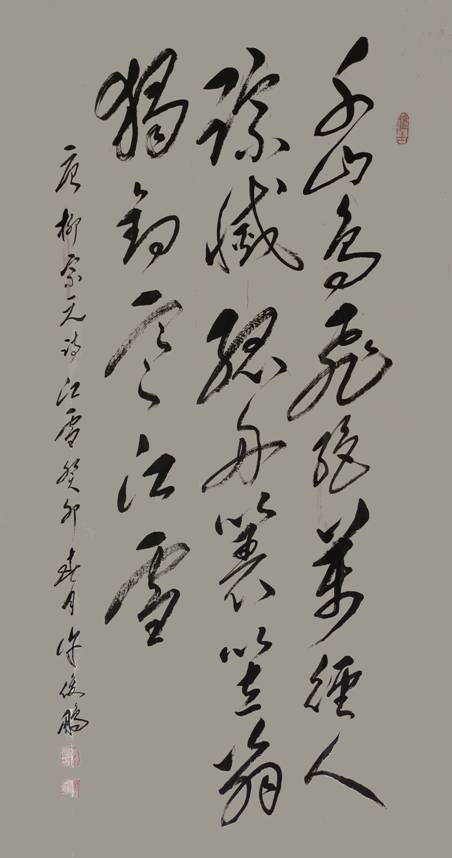 千山鸟飞绝万径人
踪灭孤舟蓑笠翁
独钓寒江雪
唐柳宗元诗江雪癸卯春月许俊鹏